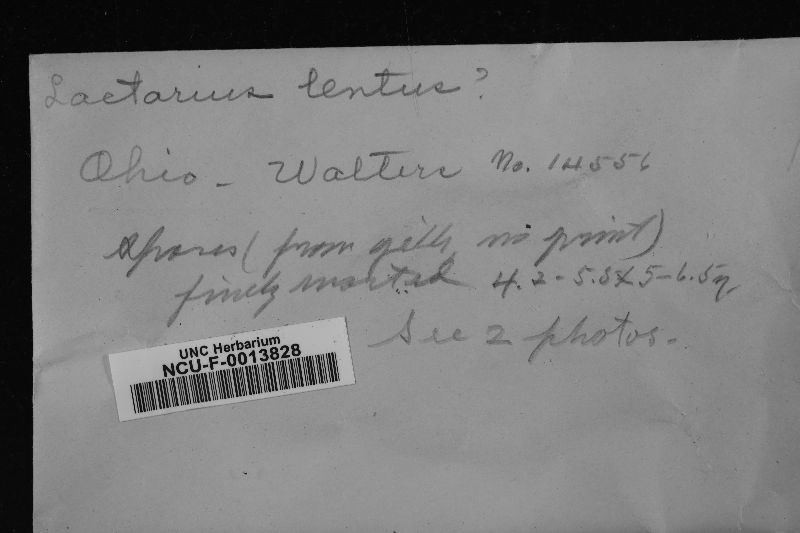 Lactarius lentus?
Ohio - Walters No. 14556
Spores (from gills no print)
finely warted 4.2-5.5x5-6.5η
See 2 photos.
UNC Herbarium
NCU-F-0013828